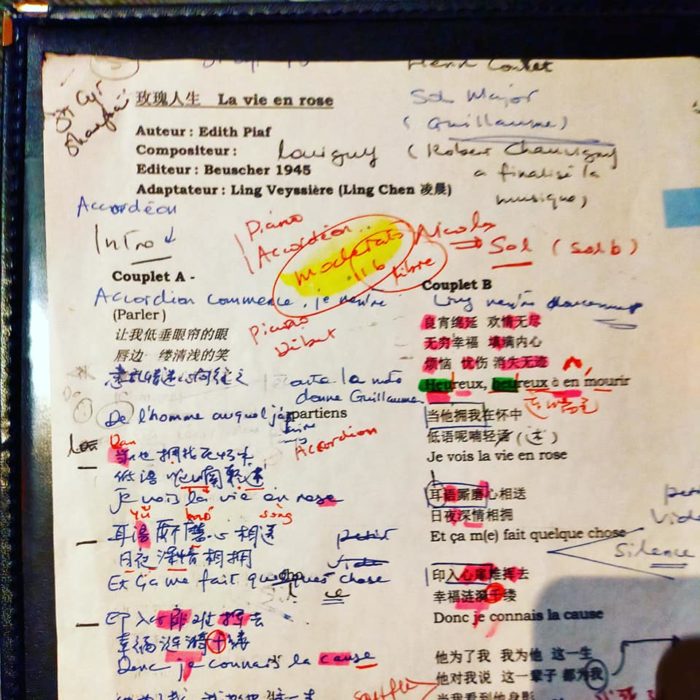 St Cyr
Shanghai
Henri Contet
玫瑰人生 La vie en rose
Sol Major
(Guillaume)
Auteur : Edith Piaf
Compositeur : Louiguy (Robert Chauvigny
a finalisé la
musique)
Editeur : Beuscher 1945
Adaptateur : Ling Veyssière (Ling Chen 凌晨)
Accordéon
Intro
Piano
Accordéon
moderato
libre
Sol (Sol b)
Couplet A -
Accordion commence, je rentre
(Parler)
让我低垂眼帘的眼
唇边一缕清浅的笑
Piano
Début
donne Guillaume
De l'homme auquel j'appartiens
Accordion
当他拥我在怀中
低语呢喃轻送
Je vois la vie en rose
yǔ
sōng
耳语厮磨心相送
日夜深情相拥
Et ça me fait quelque chose
印入心扉难挥去
幸福涟漪千缕
Donc je connais la cause
Couplet B
Ling rentre doucement
良宵绵延 欢情无尽
无穷幸福 填满内心
烦恼 忧伤 消失无迹
Heureux, heureux à en mourir
当他拥我在怀中
低语呢喃轻送
Je vois la vie en rose
耳语厮磨心相送
日夜深情相拥
Et ça m(e) fait quelque chose
petit
vide
Silence
印入心扉难挥去
幸福涟漪千缕
Donc je connais la cause
他为了我 我为他 这一生
他对我说 这一辈子 都为我
当我看到他身影